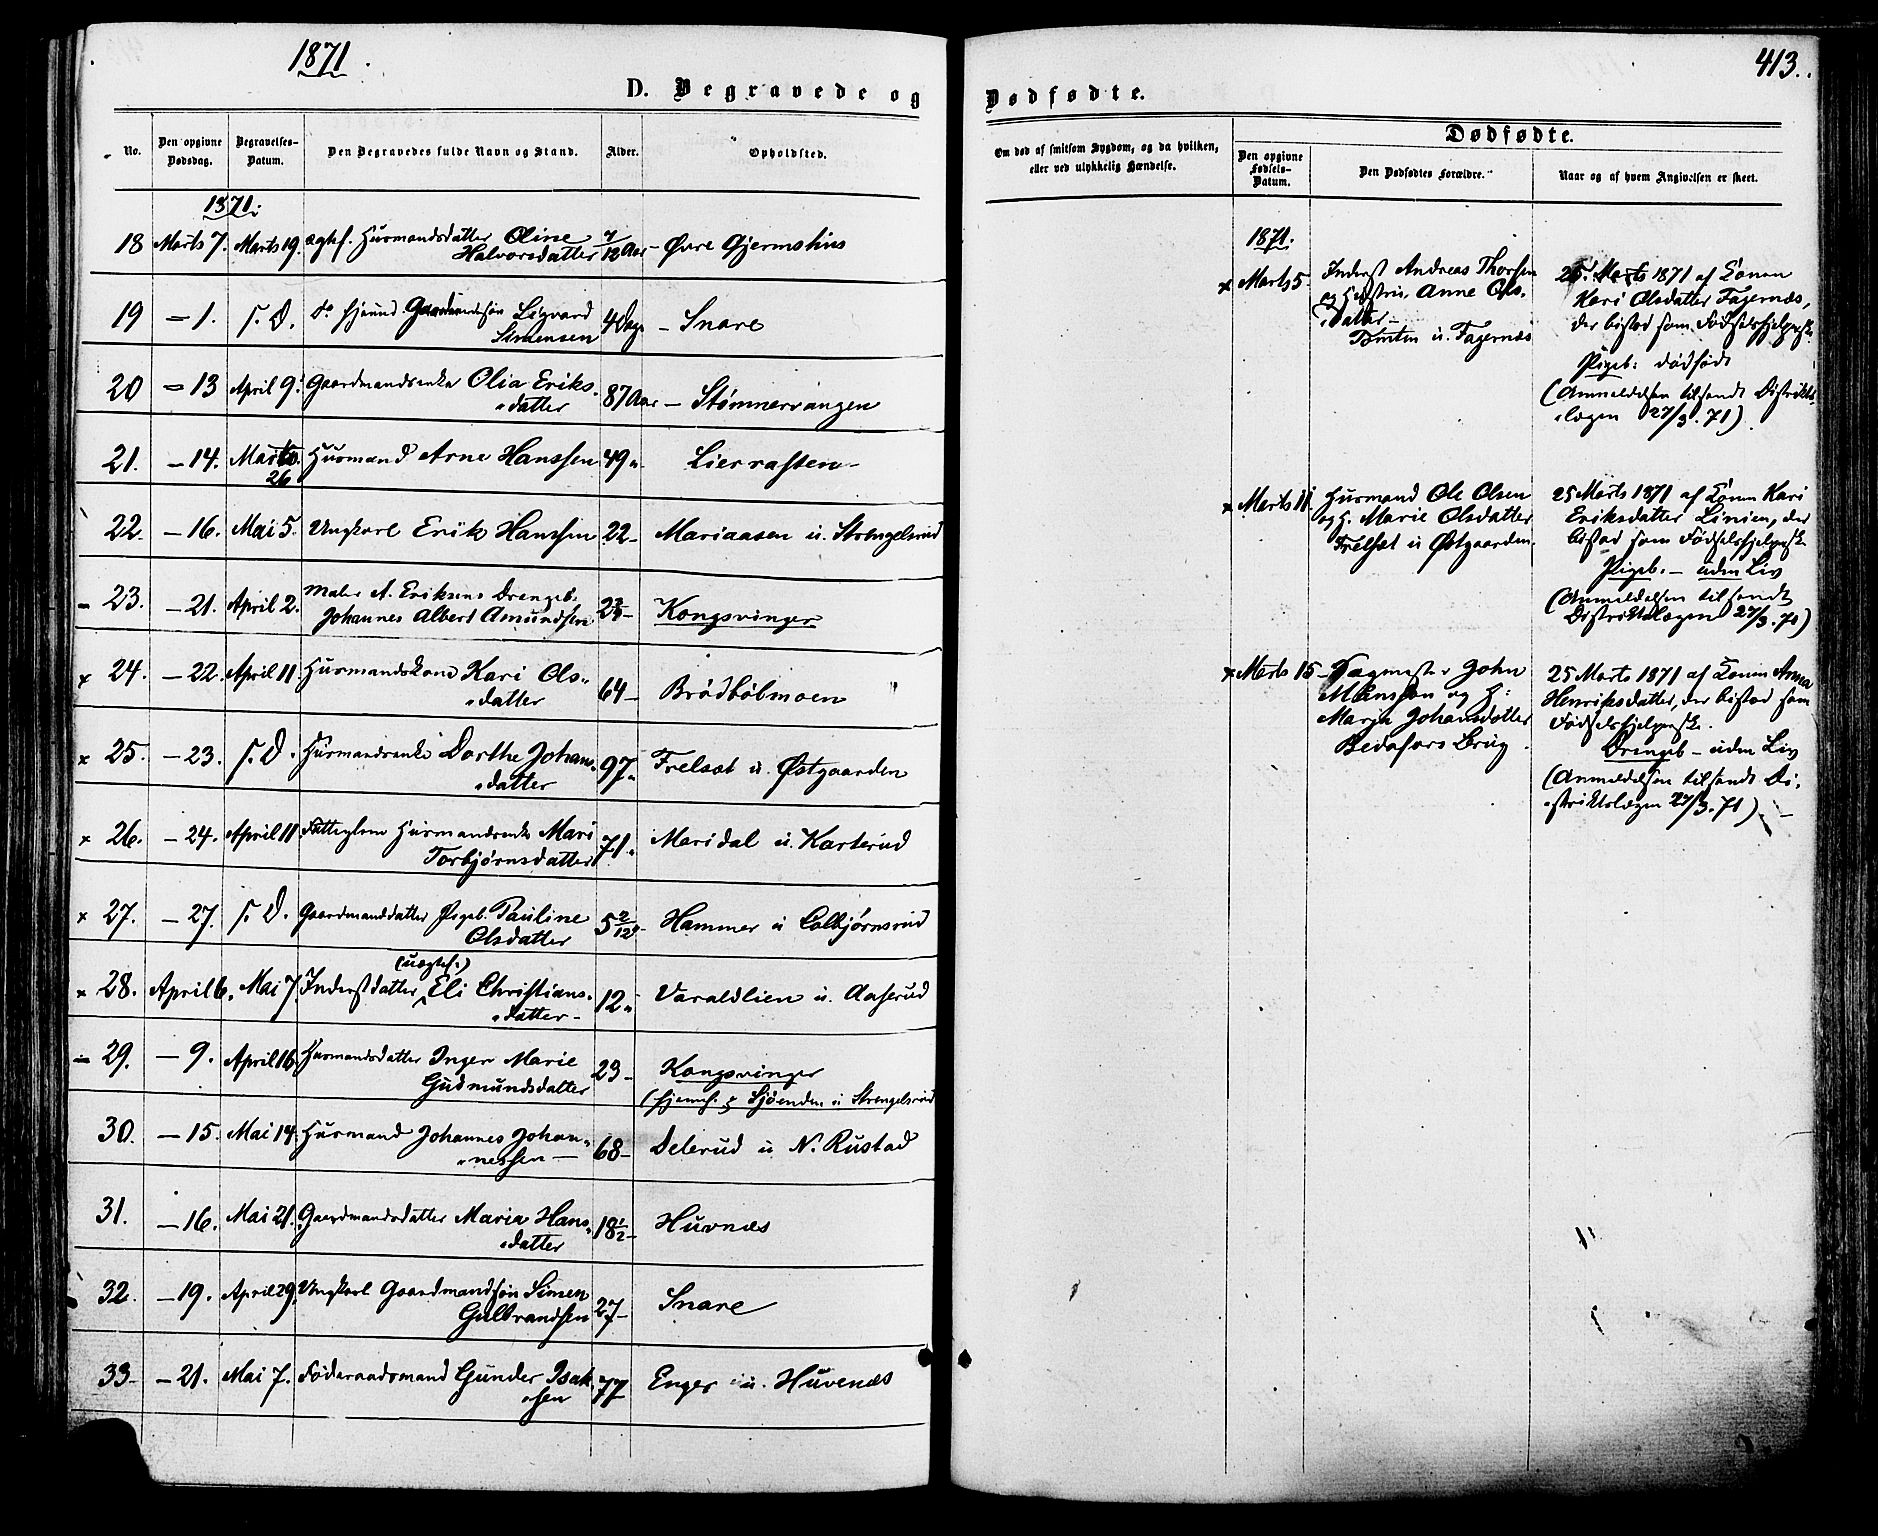 1871
D. Begravede og
No.
Den opgivne Dødsdag.
Begravelses-Datum.
Den Begravedes fulde Navn og Stand.
Alder.
Opholdsted.
1871.
18 Marts 7. Marts 19. ægtef. Husmandsdatter Oline 7/12 Aar - Øvre Gjermshus
Halvorsdatter
19 - 1. s. D. do Gaardmandssøn Sigvard 4 Dage - Snare
Simensen
20 - 13 April 9. Gaardmandsenke Olia Eriks- 87 Aar - Stømnervangen
datter
21. - 14. Marts 26 Husmand Arne Hanssen 49 " Lierrasten -
22. - 16. Mai 5. Ungkarl Erik Hanssen 22 - Mariaasen u. Strengelsrud
- 23. - 21. April 2. Maler A. Eriksens Drengeb.
Johannes Albert Amundsen Kongsvinger
x 24. - 22. April 11. Husmandskone Kari Ols- 64 - Brødbølmoen
datter
x 25. - 23. s. D. Husmandsenke Dorthe Johans- 97 " Frelset u. Østgaarden
datter
x 26. - 24. April 11 Fattiglem Husmandsenke Mari 71 " Maridal u. Karterud
Torbjørnsdatter
x 27. - 27. s. D. Gaardmanddatter Pigeb. Pauline 5 2/12 - Hammer u Colbjørnsrud
Olsdatter
(uægtef.)
x 28. April 6. Mai 7. Inderstdatter Eli Christians- 12 " Varaldlien u. Aaserud
datter -
- 29. - 9. April 16. Husmandsdatter Inger Marie 23 - Kongsvinger
Gudmundsdatter (hjemh. Sjøenden u Strengelsrud
30. - 15. Mai 14. Husmand Johannes Johan- 68 - Delerud u N. Rustad
nessen -
31. - 16. Mai 21. Gaardmandsdatter Maria Hans- 18 1/2 - Huvnæs
datter
32. - 19. April 29. Ungkarl Gaardmandssøn Simen 27 - Snare
Gulbrandsen
33 - - 21. Mai 7. Føderaadsmand Gunder Isak- 77 Enger u. Huvenæs
sen
413.
Dødfødte.
Om død af smitsom Sygdom, og da hvilken, eller ved ulykkelig Hændelse.
Dødfødte.
Den opgivne Fødsels-Datum.
Den Dødfødtes Forældre.
Naar og af hvem Angivelsen er skeet.
1871.
x Marts 5. Inderst Andreas Thorsen
og Hustru Anne Ols-
datter -
u. Fagernæs
25. Marts 1871 af Konen
Kari Olsdatter Fagernæs,
der bistod som Fødselshjelperske.
Pigeb: dødfødt
(Anmeldelsen tilsendt Distrikts-
lægen 27/3. 71)
x Marts 11. Husmand Ole Olsen
og H. Marie Olsdatter
Frelset u Østgaarden.
25 Marts 1871 af Konen Kari
Eriksdatter Linien, der
bistod som Fødselshjelpersk.
Pigeb. - uden Liv
(Anmeldelsen tilsendt
Distriktslægen 27/3. 71)
x Marts 15 - John
Månsson og H:
Marja Johansdatter
Bedafors Brug.
25 Marts 1871 af Konen Anna
Henriksdatter, der bistod som
Fødselshjelpersk.
Drengeb - uden Liv
(Anmeldelsen tilsendt Di-
striktslægen 27/3. 71) -